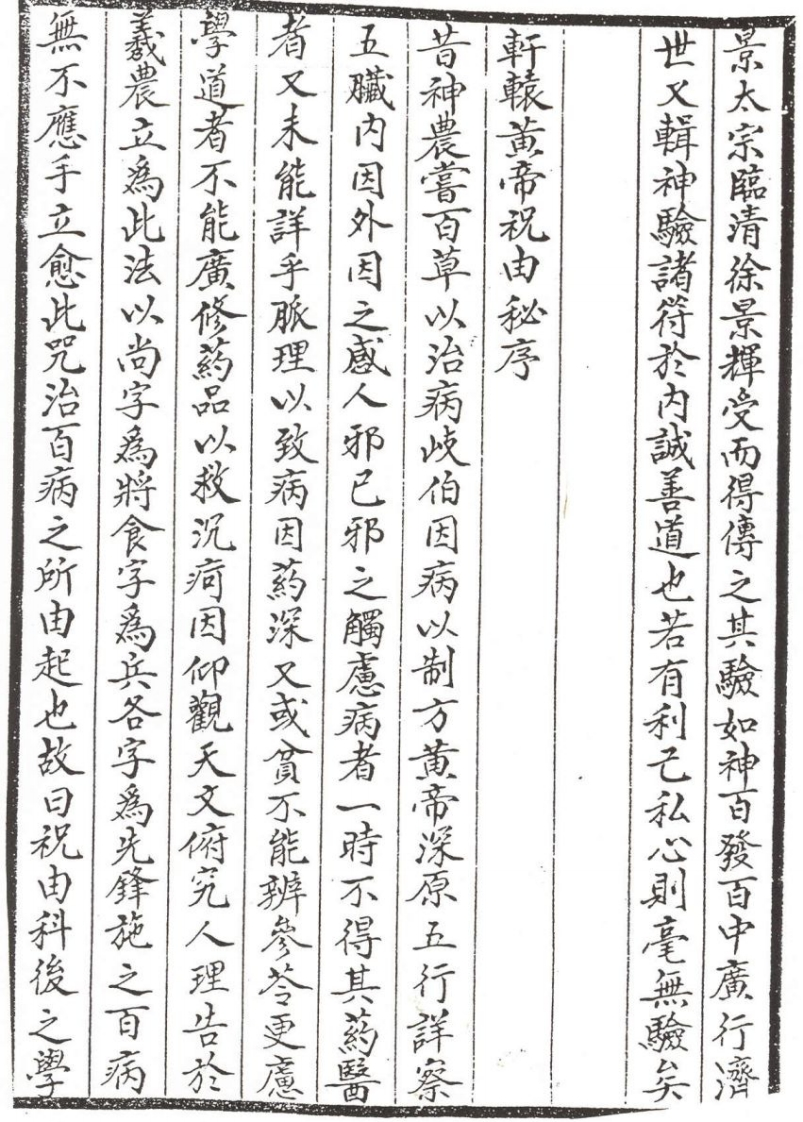 景太宗臨清徐景輝受而得傳之其驗如神百發百中廣行濟
世又輯神驗諸符於內誠善道也若有利己私心則毫無驗矣
軒轅黃帝祝由秘序
昔神農嘗百草以治病歧伯因病以制方黃帝深原五行詳察
五臟內因外因之感人邪已邪之觸慮病者一時不得其葯醫
者又未能詳乎脈理以致病因葯深又或貧不能辨參苓更慮
學道者不能廣修葯品以救沉疴因仰觀天文俯究人理告於
羲農立爲此法以尚字爲將食字爲兵各字爲先鋒施之百病
無不應手立愈此咒治百病之所由起也故曰祝由科後之學